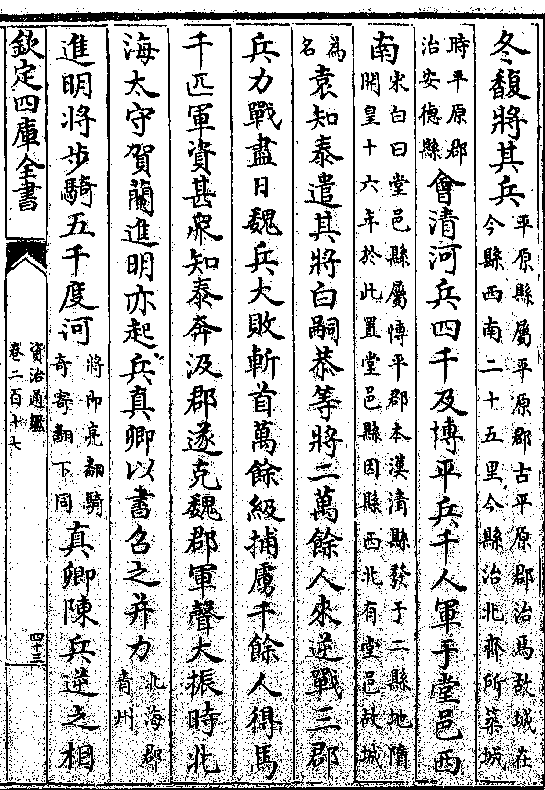 冬馥將其兵平原縣屬平原郡古平原郡治焉故城在
今縣西南二十五里今縣治北齊所築城
時平原郡
治安德縣會清河兵四千及博平兵千人軍于堂邑西
南宋白曰堂邑縣屬博平郡本漢清縣發干二縣地隋
開皇十六年於此置堂邑縣因縣西北有堂邑故城
為
名袁知泰遣其將白嗣恭等將二萬餘人來逆戰三郡
兵力戰盡日魏兵大敗斬首萬餘級捕虜千餘人得馬
千匹軍資甚衆知泰奔汲郡遂克魏郡軍聲大振時北
海太守賀蘭進明亦起兵真卿以書召之并力北海郡
青州
進明將步騎五千度河將即亮翻騎
奇寄翻下同真卿陳兵逆之相
欽定四庫全書
資治通鑑
卷二百十七
四十三